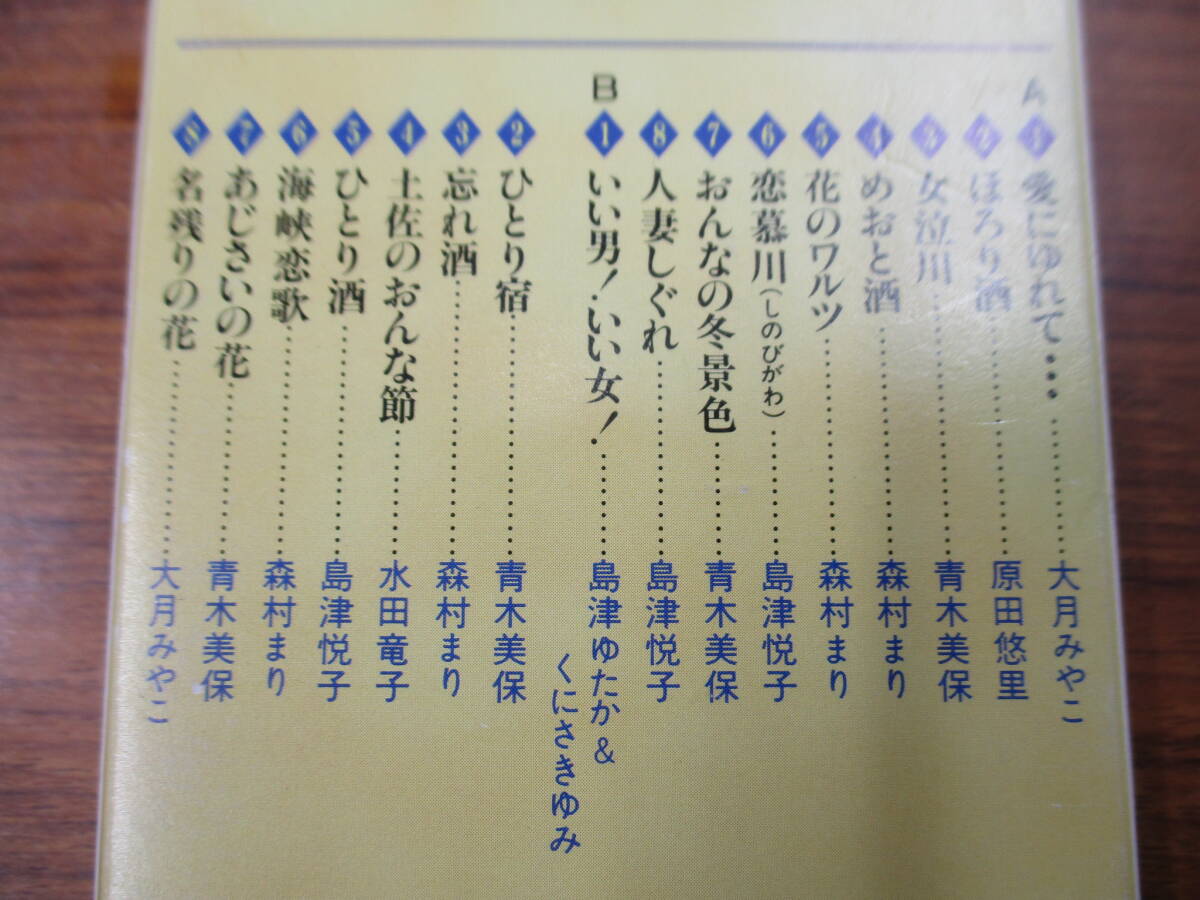 A
1 愛にゆれて…………大月みやこ
2 ほろり酒…………原田悠里
3 女泣川…………青木美保
4 めおと酒…………森村まり
5 花のワルツ…………森村まり
6 恋慕川(しのびがわ)…………島津悦子
7 おんなの冬景色…………青木美保
8 人妻しぐれ…………島津悦子
B
1 いい男!いい女!…………島津ゆたか&
くにさきゆみ
2 ひとり宿…………青木美保
3 忘れ酒…………森村まり
4 土佐のおんな節…………水田竜子
5 ひとり酒…………島津悦子
6 海峡恋歌…………森村まり
7 あじさいの花…………青木美保
8 名残りの花…………大月みやこ